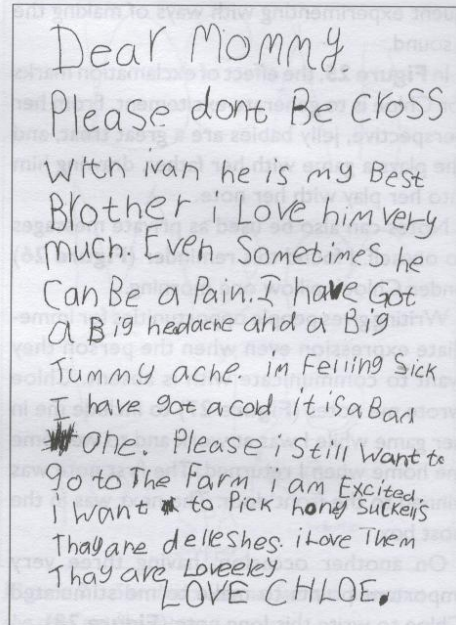 Dear Mommy
Please dont Be cross
With ivan he is my Best
Brother I Love him very
much. Even Sometimes he
Can Be a Pain. I have Got
a Big headache and a big
Tummy ache. im Felling Sick
I have got a cod It is a Bad
one. Please i Still Want to
go to The Farm i am Excited.
I want to Pick hony Suckels
Thay are delleshes i Love Them
Thay are Loveeley
LOVE CHLOE.